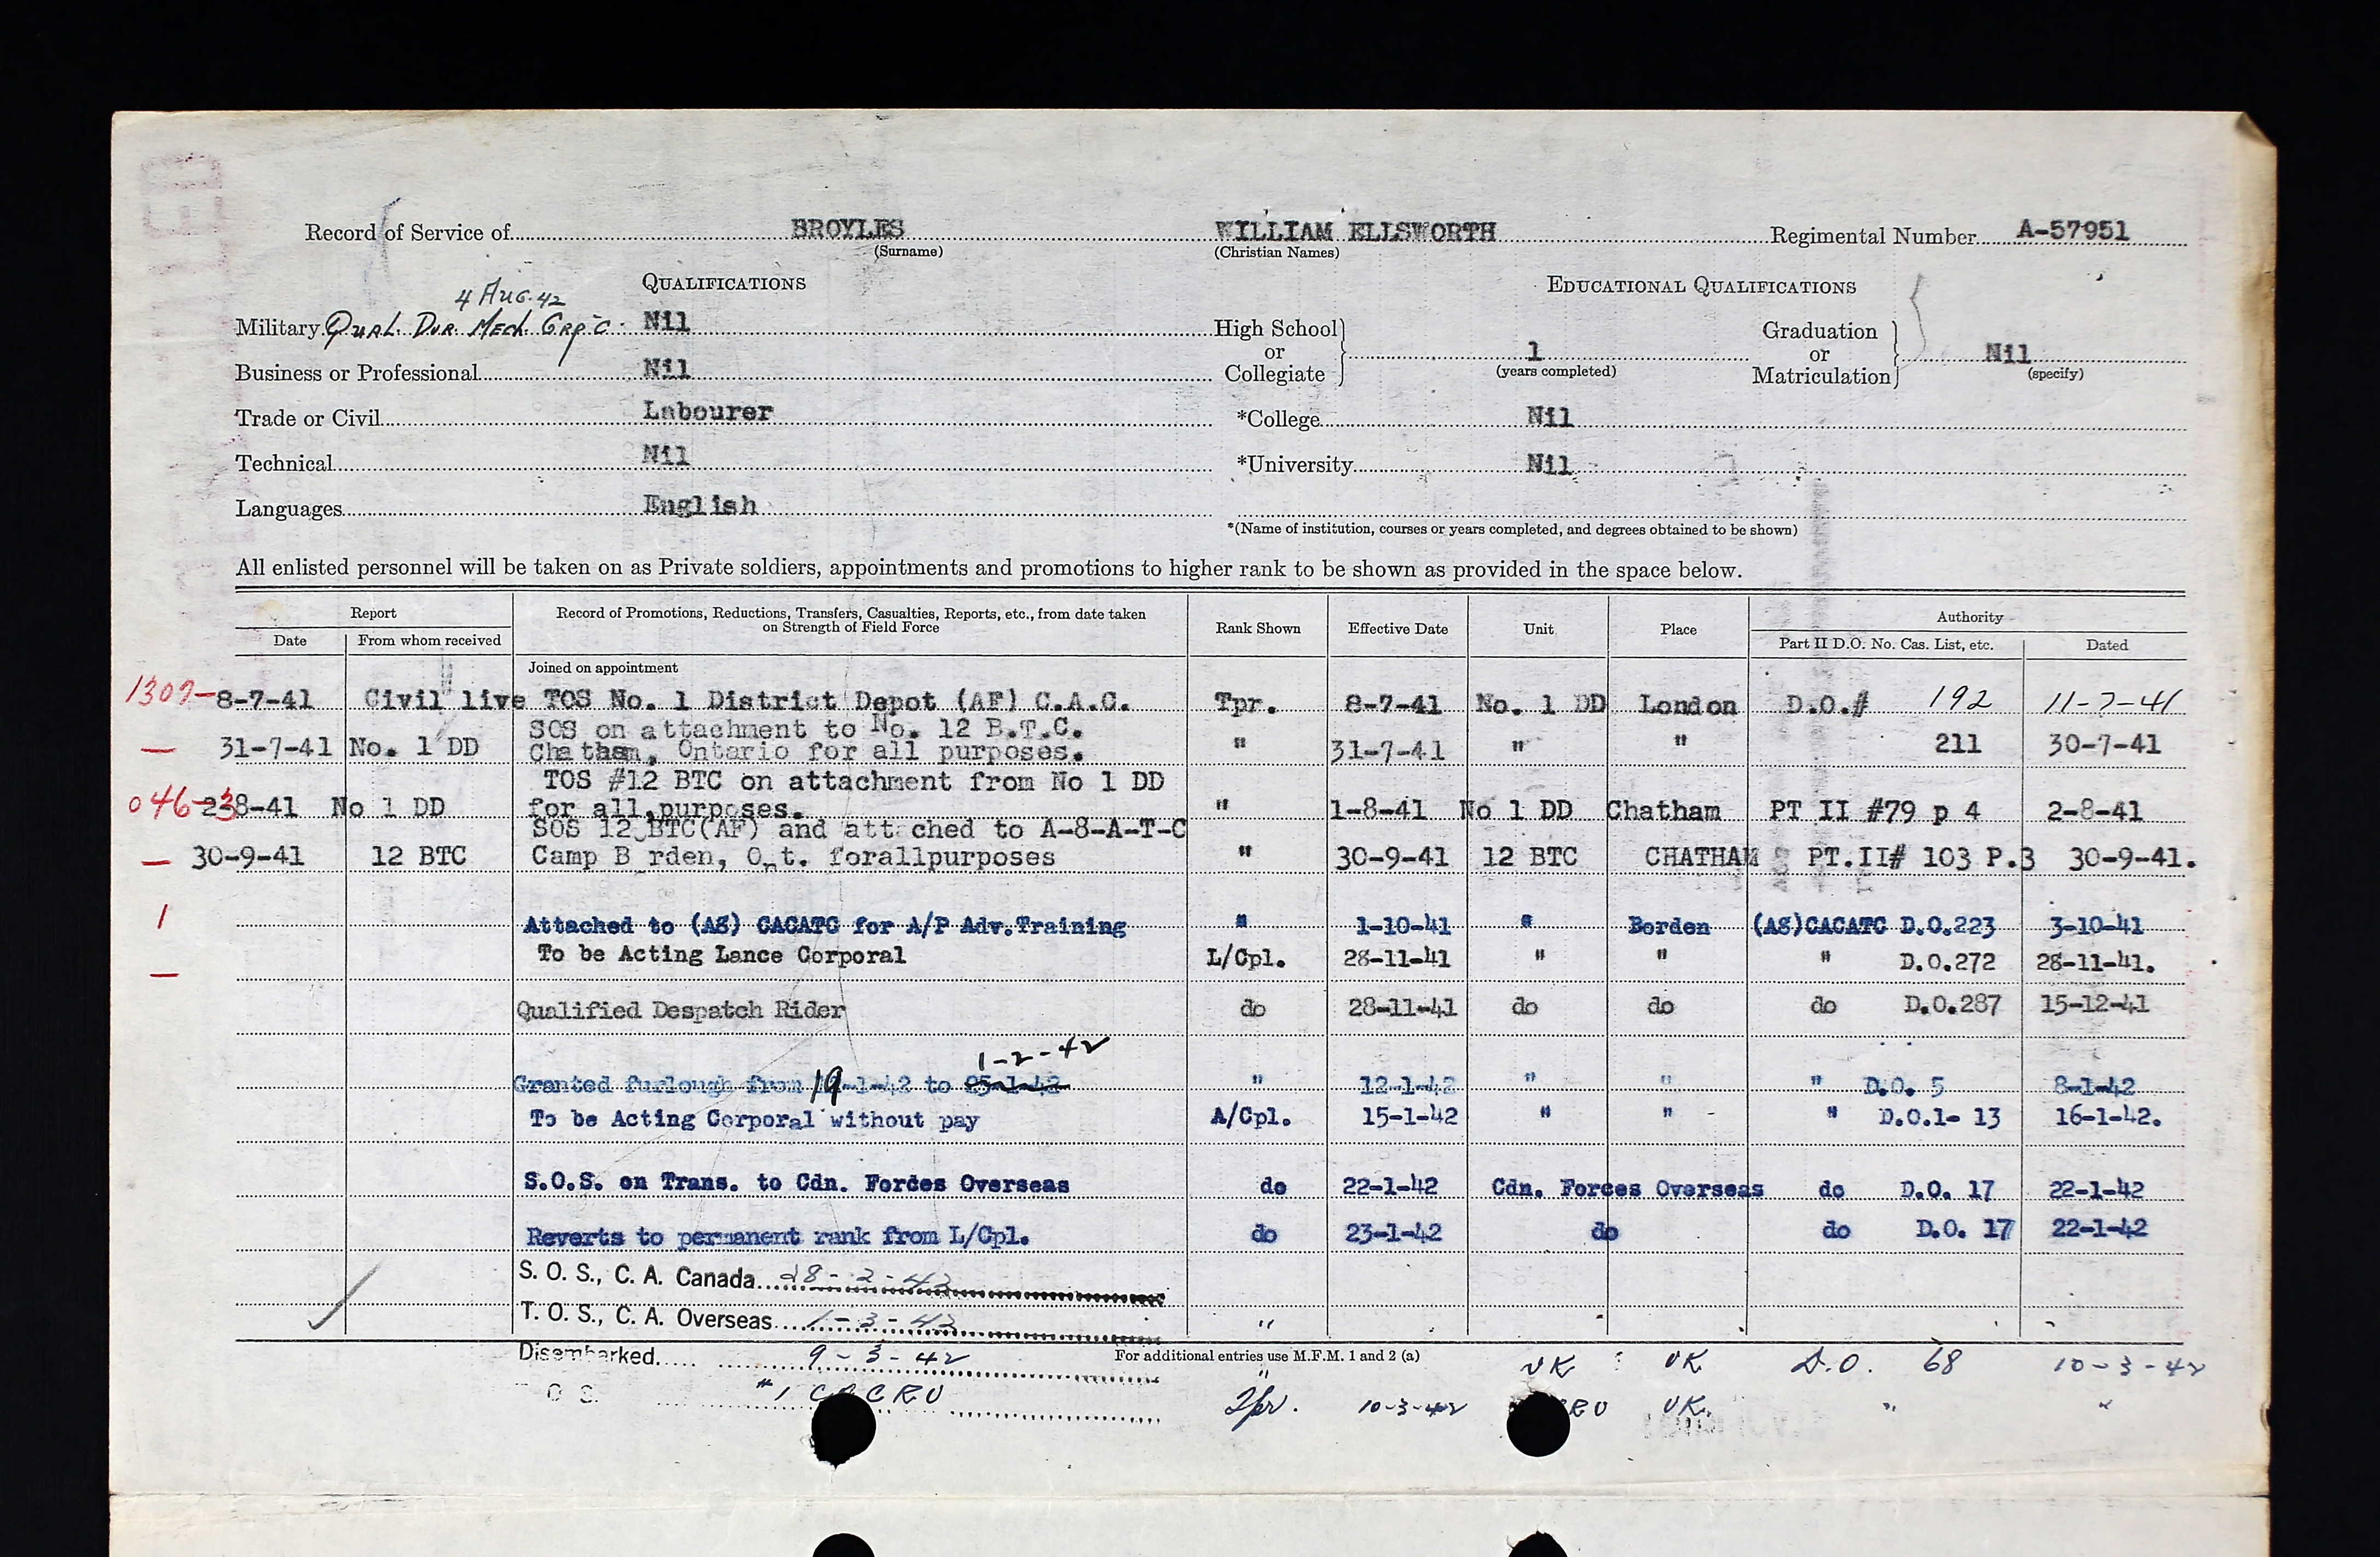 Record of Service of BROYLES WILLIAM ELLSWORTH Regimental Number A-57951
(Surname) (Christian Names)
QUALIFICATIONS
EDUCATIONAL QUALIFICATIONS
4 AUG. 42
Military QUAL. DVR. MECH. GRP. C. Nil
High School or Collegiate 1 Graduation or Matriculation Nil
(years completed) (specify)
Business or Professional Nil
Trade or Civil Labourer *College Nil
Technical Nil *University Nil
Languages English
*(Name of institution, courses or years completed, and degrees obtained to be shown)
All enlisted personnel will be taken on as Private soldiers, appointments and promotions to higher rank to be shown as provided in the space below.
Report Record of Promotions, Reductions, Transfers, Casualties, Reports, etc., from date taken on Strength of Field Force Rank Shown Effective Date Unit Place Authority
Date From whom received Part II D.O. No. Cas. List, etc. Dated
Joined on appointment
8-7-41 Civil live TOS No. 1 District Depot (AF) C.A.C. Tpr. 8-7-41 No. 1 DD London D.O.# 192 11-7-41
SOS on attachment to No. 12 B.T.C.
31-7-41 No. 1 DD Chatham, Ontario for all purposes. " 31-7-41 " " 211 30-7-41
TOS #12 BTC on attachment from No 1 DD
046-3 2-8-41 No 1 DD for all purposes. " 1-8-41 No 1 DD Chatham PT II #79 p 4 2-8-41
SOS 12 BTC(AF) and att ched to A-8-A-T-C
— 30-9-41 12 BTC Camp B rden, O t. forallpurposes " 30-9-41 12 BTC CHATHAM PT.II# 103 P.3 30-9-41.
1 Attached to (A8) CACATC for A/P Adv.Training " 1-10-41 " Borden (A8)CACATC D.O.223 3-10-41
— To be Acting Lance Corporal L/Cpl. 28-11-41 " " " D.O.272 28-11-41.
Qualified Despatch Rider do 28-11-41 do do do D.O.287 15-12-41
1-2-42
Granted furlough from 19-1-42 to 25-1-42 " 12-1-42 " " " D.O. 5 8-1-42
To be Acting Corporal without pay A/Cpl. 15-1-42 " " - " D.O.1- 13 16-1-42.
S.O.S. on Trans. to Cdn. Fordes Overseas do 22-1-42 Cdn. Forces Overseas do D.O. 17 22-1-42
Reverts to permanent rank from L/Cpl. do 23-1-42 do do D.O. 17 22-1-42
S. O. S., C. A. Canada 28-2-42
T. O. S., C. A. Overseas 1-3-42 "
For additional entries use M.F.M. 1 and 2 (a)
Disembarked 9-3-42 " UK UK D.O. 68 10-3-42
O S #1 CACRU Tpr. 10-3-42 RU UK. " "